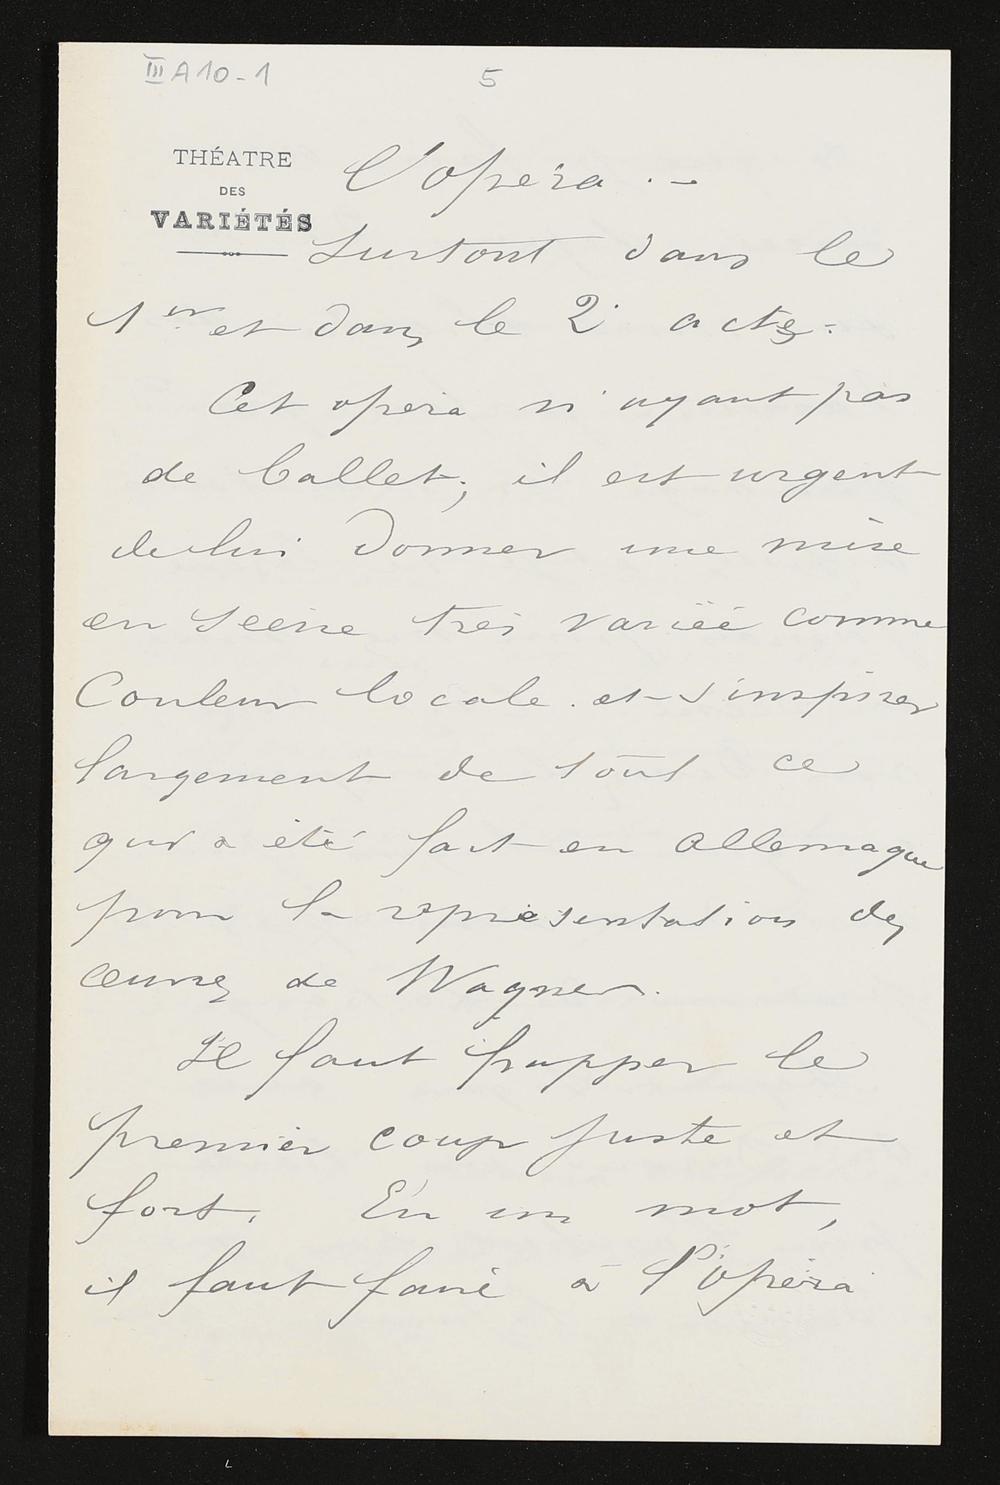 III A 10 - 1
5
THÉATRE
DES
VARIÉTÉS
L'opera . -
Surtout dans le
1er et dans le 2e acte.
Cet opera n'ayant pas
de ballet, il est urgent
de lui donner une mise
en scène très variée comme
Couleur locale. et s'inspirer
largement de tout ce
qui a été fait en allemagne
pour la représentation des
œuvres de Wagner.
Il faut frapper le
premier coup juste et
fort. En un mot,
il faut faire à l'Opéra